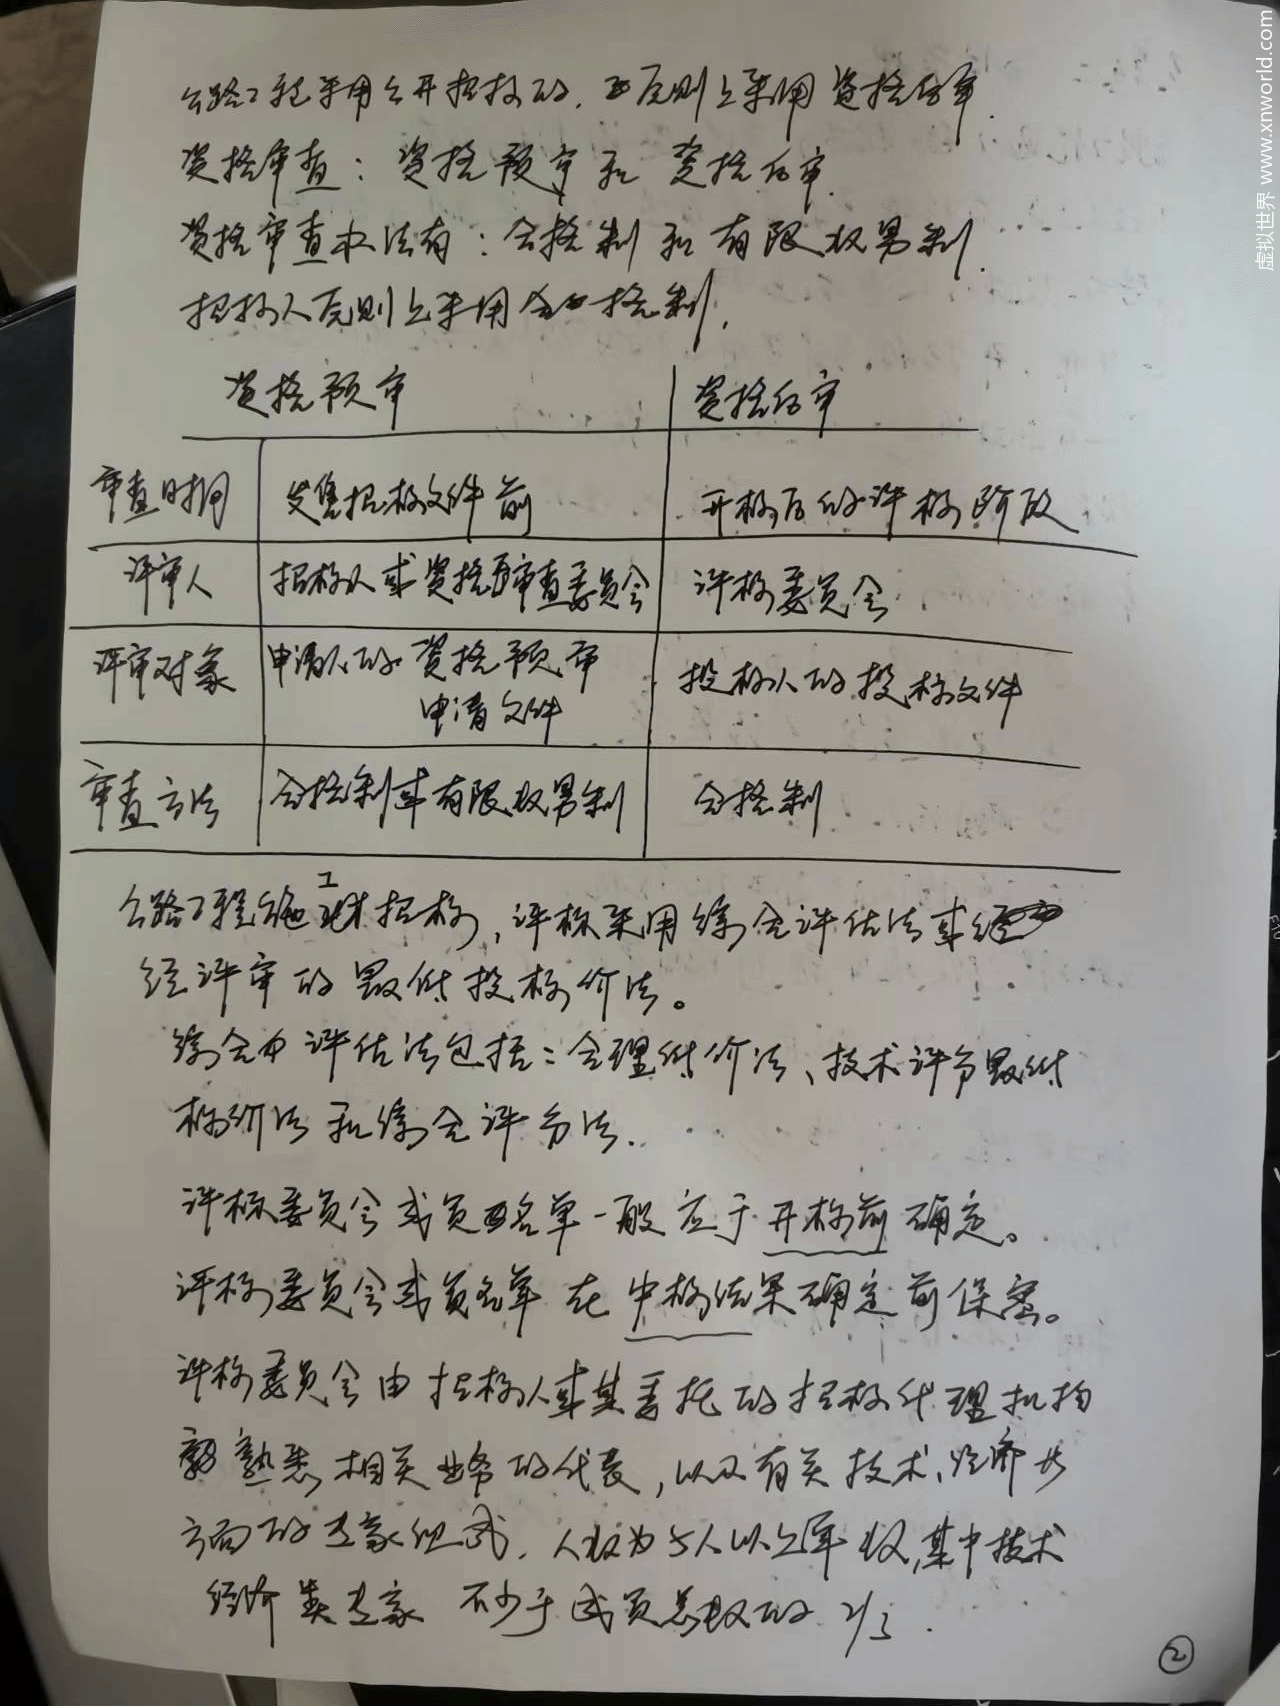 公路工程采用公开招投的，原则上采用资格后审.
资格审查：资格预审和资格后审.
资格审查办法有：合格制和有限数男制.
招投人原则上采用合格制.
资格预审 资格后审
审查时间 发售招标文件前 开标后的评标阶段
评审人 招标人或资格审查委员会 评标委员会
评审对象 申请人的资格预审 投标人的投标文件
申请文件
审查方法 合格制或有限数男制 合格制
公路工程施工招标，评标采用综合评估法或
经评审的最低投标价法。
综合评估法包括：合理低价法、技术评分最低
标价法和综合评分法.
评标委员会成员名单一般应于开标前确定。
评标委员会成员名单在中标结果确定前保密。
评标委员会由招标人或其委托的招标代理机构
熟悉相关业务的代表，以及有关技术、经济步
方面的专家组成，人数为5人以上单数，其中技术
经济类专家不少于成员总数的2/3.
②
虚拟世界 www.xnworld.com